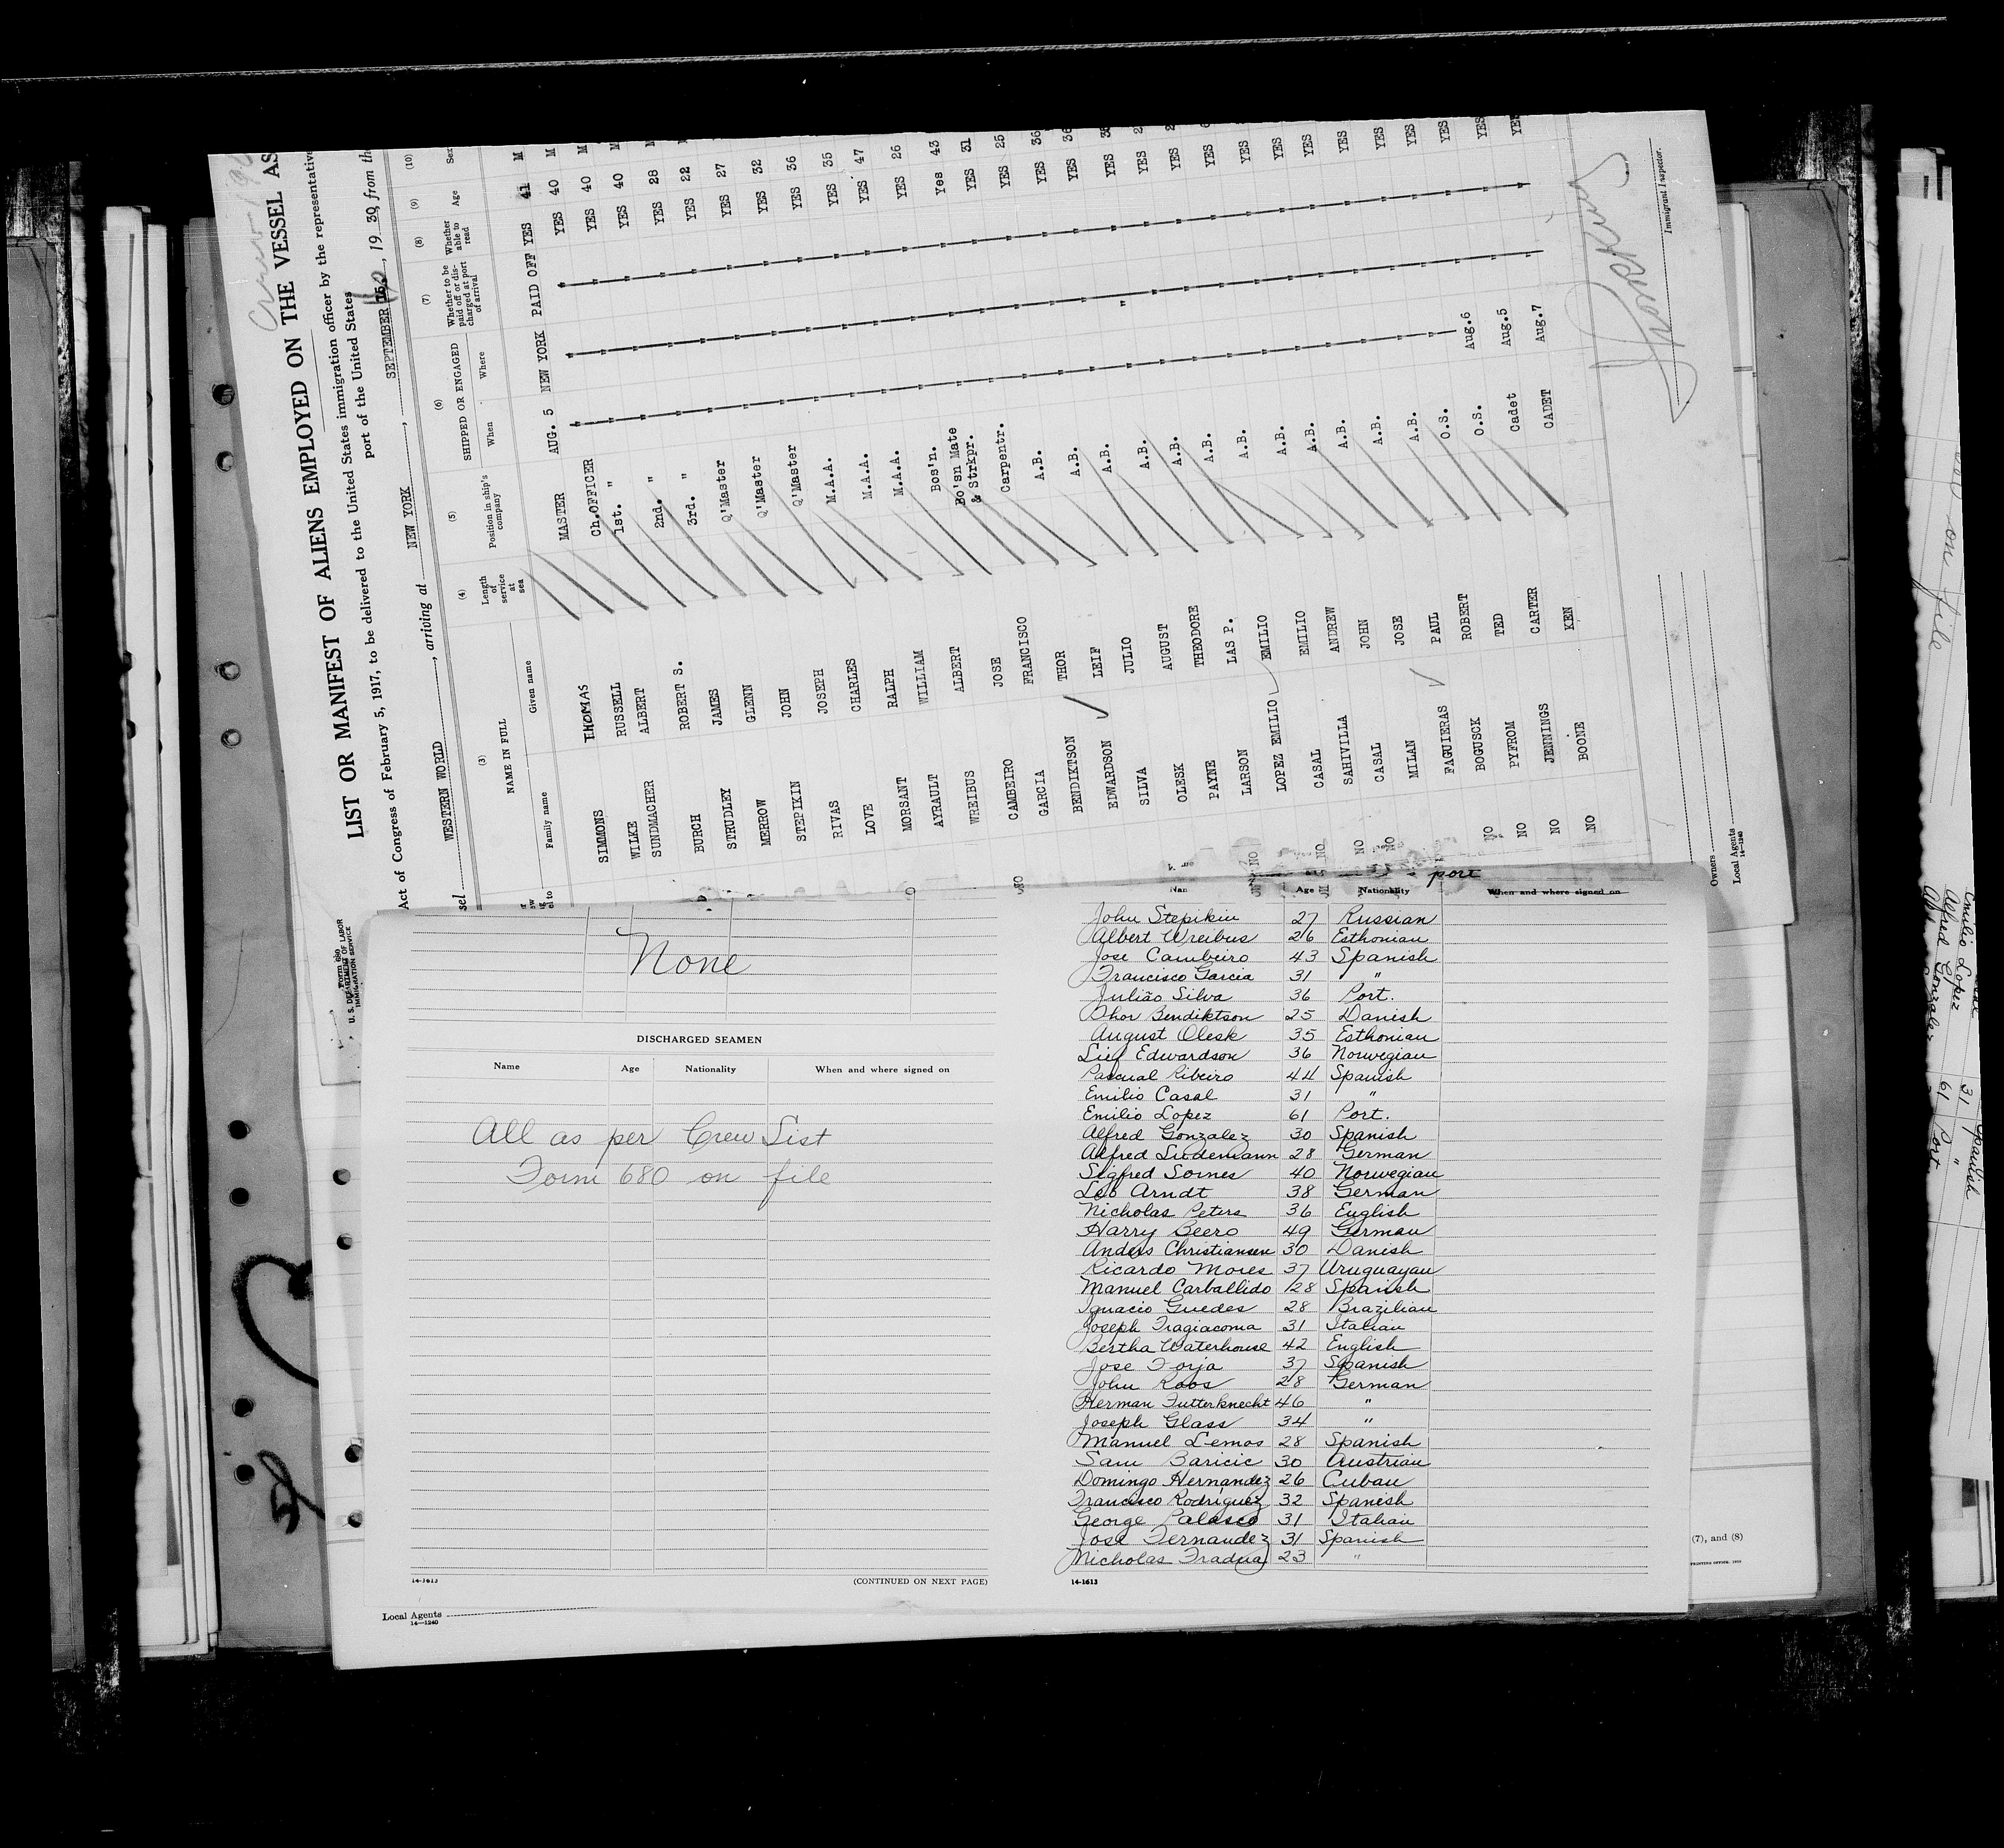 LIST OR MANIFEST OF ALIENS EMPLOYED ON THE VESSEL AS
Act of Congress of February 5, 1917, to be delivered to the United States immigration officer by the representative
port of the United States
WESTERN WORLD, arriving at NEW YORK, SEPTEMBER, 1930, from the
(3) (4) (5) (6) (7) (8) (9) (10)
NAME IN FULL
Family name Given name
Length of service at sea
Position in ship's company
SHIPPED OR ENGAGED
When Where
Whether to be paid off or discharged at port of arrival
Whether able to read
Age
Sex
SIMMONS THOMAS MASTER AUG. 5 NEW YORK PAID OFF YES 41 M
WILKE RUSSELL Ch.OFFICER YES 40 M
SUNDMACHER ALBERT 1st. " YES 40 M
BURCH ROBERT S. 2nd. " YES 40
STRUDLEY JAMES 3rd. " YES 28
MERROW GLENN Q'Master YES 22
STEPIKIN JOHN Q'Master YES 27
RIVAS JOSEPH Q'Master YES 32
LOVE CHARLES M.A.A. YES 36
MORSANT RALPH M.A.A. YES 35
AYRAULT WILLIAM M.A.A. YES 47
WREIBUS ALBERT Bos'n. YES 26
CAMBEIRO JOSE Bo'sn Mate & Strkpr. Yes 43
GARCIA FRANCISCO Carpentr. YES 31
BENDIKTSON THOR A.B. YES 25
EDWARDSON LEIF A.B. YES 36
SILVA JULIO A.B. YES 36
OLESK AUGUST A.B. YES
PAYNE THEODORE A.B. YES
LARSON LAS P. A.B. YES
LOPEZ EMILIO EMILIO A.B. YES
CASAL EMILIO A.B. YES
SAHIVILLA ANDREW A.B. YES
CASAL JOHN A.B. YES
MILAN JOSE A.B. YES
FAGUIERAS PAUL A.B. YES
NO BOGUSCK ROBERT O.S. YES
NO PYFROM TED O.S. Aug.6 YES
NO JENNINGS CARTER Cadet Aug.5 YES
NO BOONE KEN CADET Aug.7 YES
Immigrant Inspector.
Owners
Local Agents
14-1240
Form 680
U. S. DEPARTMENT OF LABOR
IMMIGRATION SERVICE
None
DISCHARGED SEAMEN
Name Age Nationality When and where signed on
All as per Crew List
Form 680 on file
14-1613 (CONTINUED ON NEXT PAGE)
Local Agents
14-1240
port
Age Nationality When and where signed on
John Stepikin 27 Russian
Albert Wreibus 26 Esthonian
Jose Cambeiro 43 Spanish
Francisco Garcia 31 "
Julião Silva 36 Port.
Thor Bendiktson 25 Danish
August Olesk 35 Esthonian
Lief Edwardson 36 Norwegian
Pascual Ribeiro 44 Spanish
Emilio Casal 31 "
Emilio Lopez 61 Port.
Alfred Gonzalez 30 Spanish
Alfred Lindemann 28 German
Sigfred Soines 40 Norwegian
Leo Arndt 38 German
Nicholas Peters 36 English
Harry Beero 49 German
Anders Christiansen 30 Danish
Ricardo Mores 37 Uruguayan
Manuel Carballido 28 Spanish
Ignacio Guedes 28 Brazilian
Joseph Fragiacoma 31 Italian
Bertha Waterhouse 42 English
Jose Forja 37 Spanish
John Roos 28 German
Herman Futterknecht 46 "
Joseph Glass 34 "
Manuel Lemos 28 Spanish
Sam Baricic 30 Austrian
Domingo Hernandez 26 Cuban
Francisco Rodriguez 32 Spanish
George Palasco 31 Italian
Jose Fernandez 31 Spanish
Nicholas Fradua 23 "
14-1613
(7), and (8)
on file
Emilio Lopez 61 Port.
Alfred Gonzalez